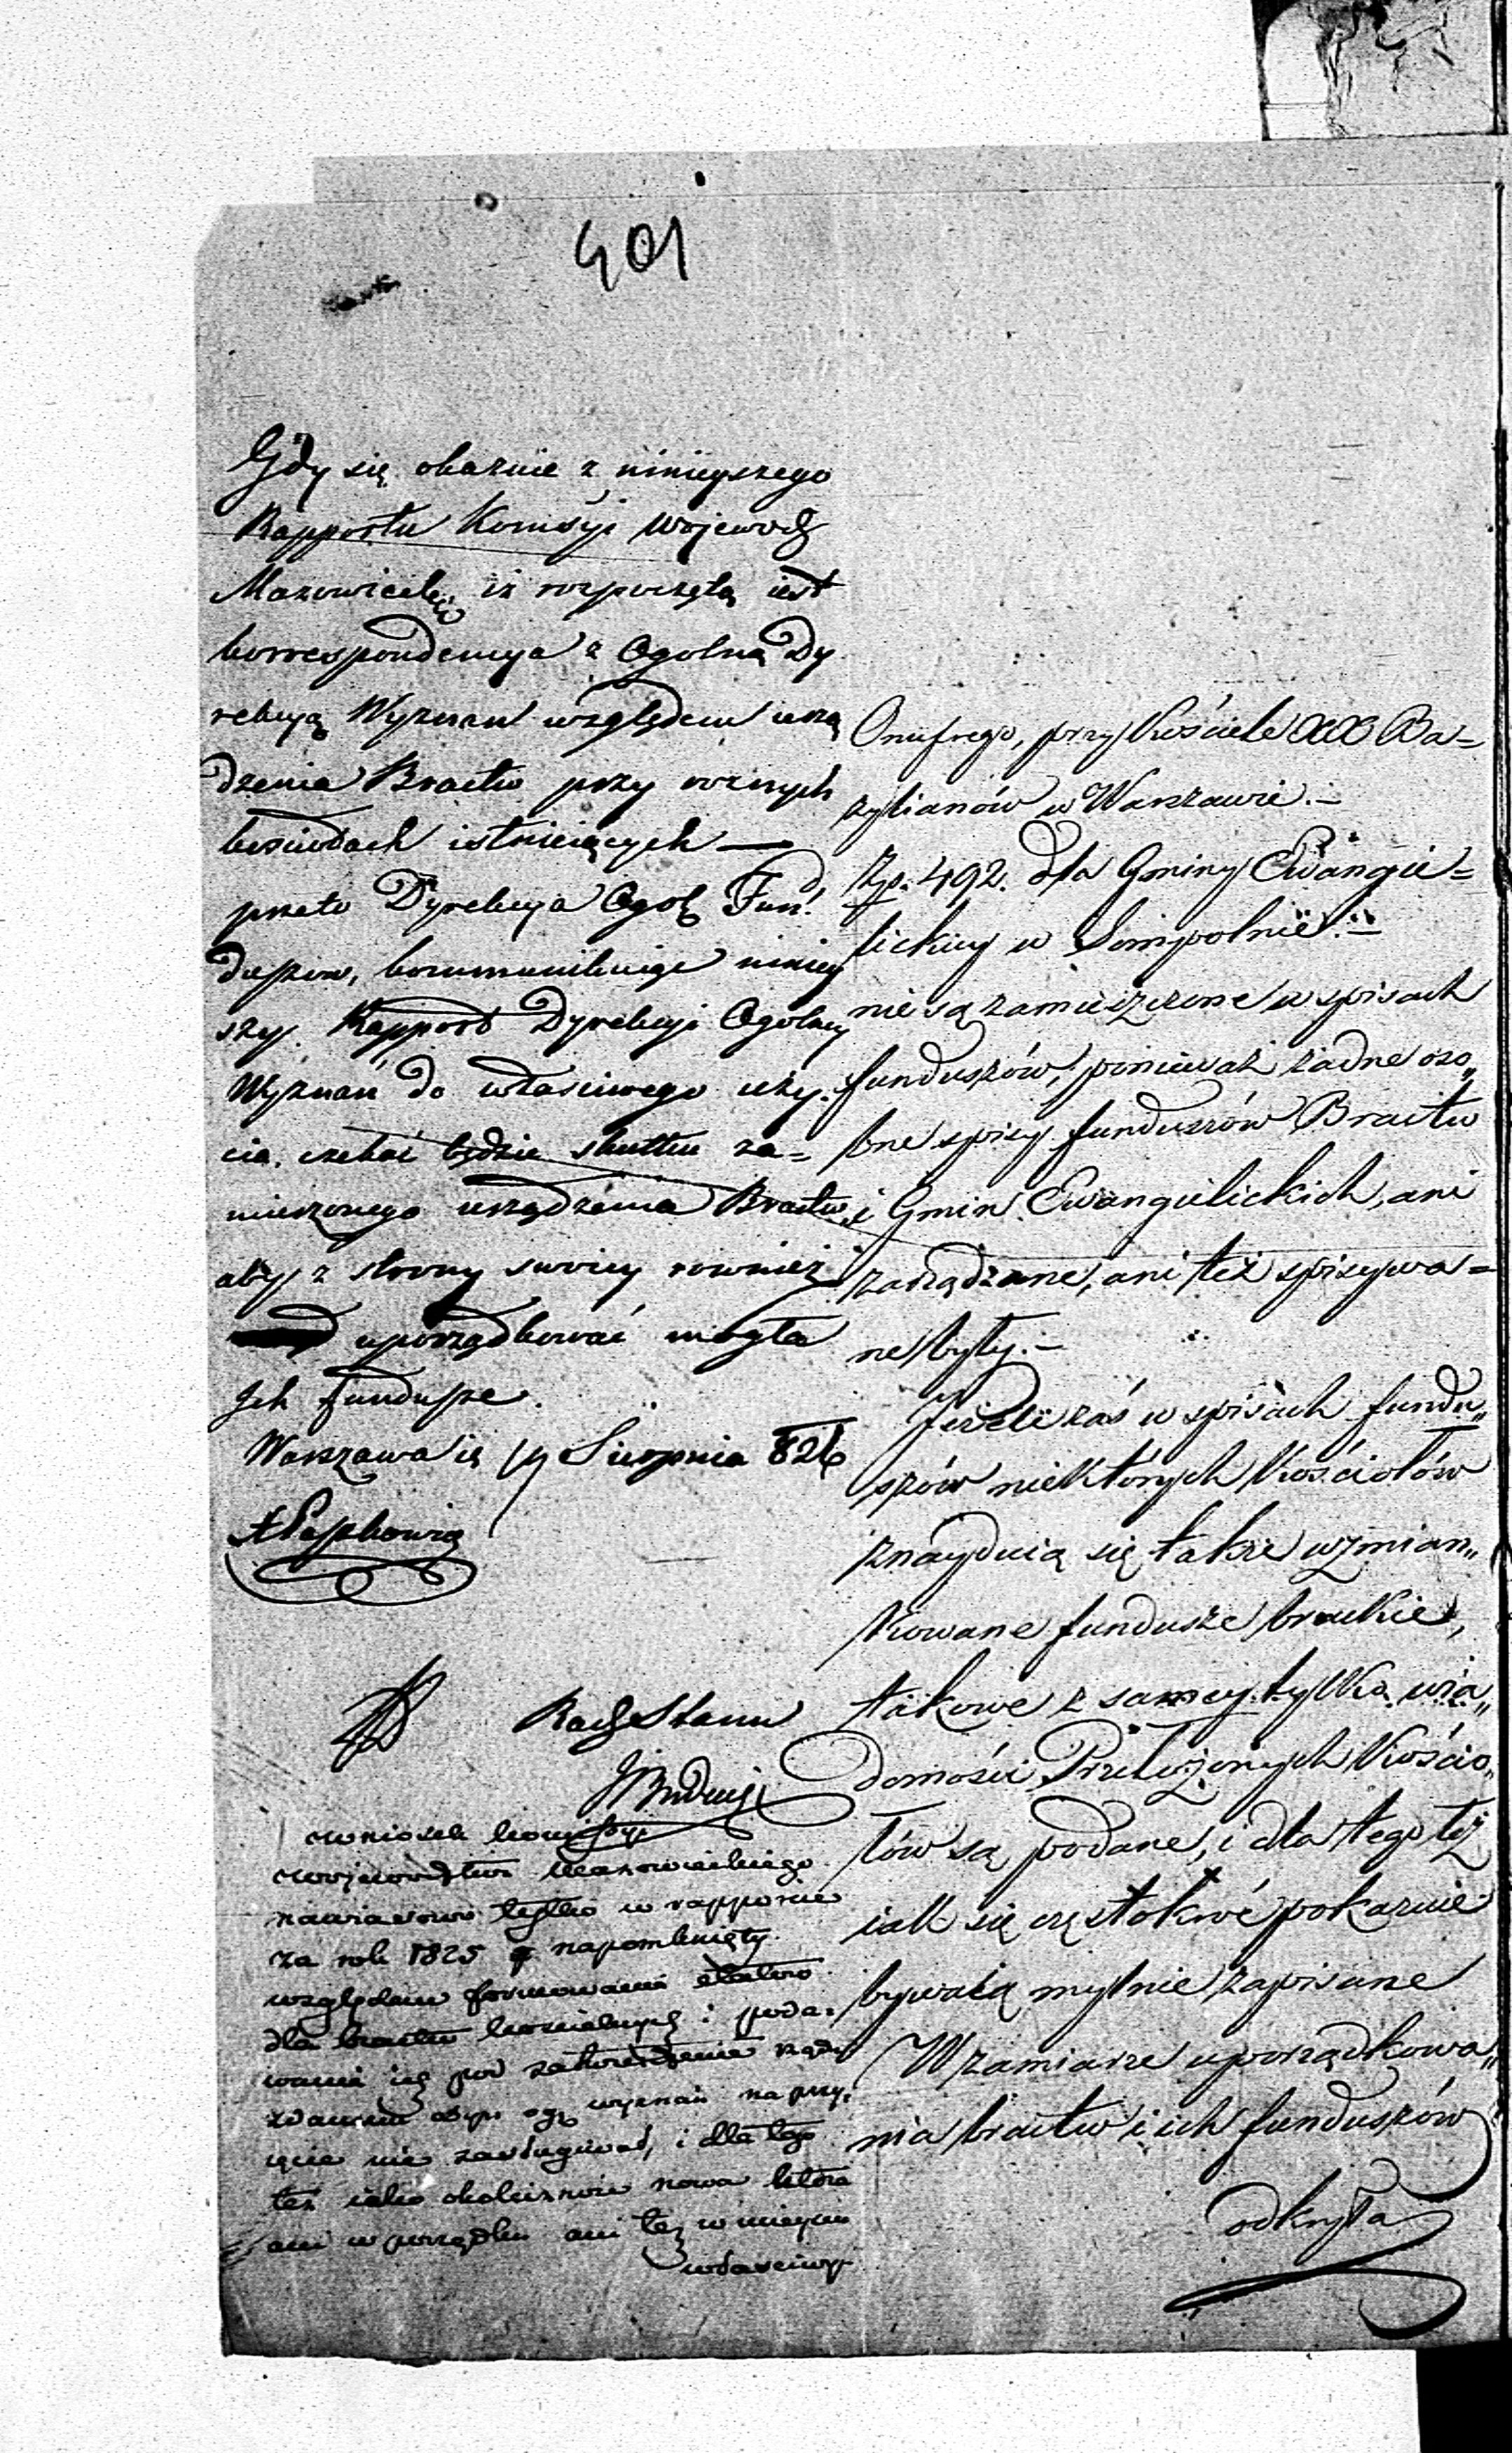 401
Gdy się okaznie z ninieyszego
Rapportu Komisyi Wojewodz
Mazowieckiego iż rozpoczętą iest
korrespondencya z Ogolną Dy
rekcyą Wyznań względem urzą
dzenia Bractw przy roznych
kosciołach istnieiących —
przeto Dyrekcya Ogoł Fun
duszow, kommunikuiąc niniey
szy Rapport Dyrekcyi Ogolney
Wyznań do właściwego uży-
cia, czekać będzie skutku za=
mierzonego urządzenia Bractw,
aby z strony swoiey rownież
uporządkować mogła
Jch fundusze.
Warszawa 19 Sierpnia 826
Radz Stanu
wniosek komissyi
woiewodztwa Mazowieckiego
nawiasowo tylko w rapporcie
za rok 1825 napomknięty
względem formowania etatow
dla bractw koscielnych i poda-
wania ich pod zatwierdzenie
wyznań na przy-
ięcie nie zasługiwał, i dla tego
też iako okoliczność nowa która
ani w porządku ani też w mieyscu
właściwy
Onufrego, przy Kościele XXX Ba=
zylianów w Warszawie.—
Zp. 492. dla Gminy Ewangie=
lickiey w Sompolnie.—
nie są zamieszczone w spisach
funduszów, ponieważ żadne oso„
bne spisy funduszów Bractw
i Gmin Ewangielickich, ani
zarządzane, ani też spisywa=
ne były.—
Jeżeli zaś w spisach fundu„
szów niektórych Kościołów
znayduią się także wzmian„
kowane fundusze brackie,
takowe z samey tylko wia„
domości Przełożonych Kościo„
łów są podane, i dla tego też
iak się częstokroć pokaznie
bywaią mylnie zapisane
W zamiarze uporządkowa„
nia bractw i ich funduszów
odkryta